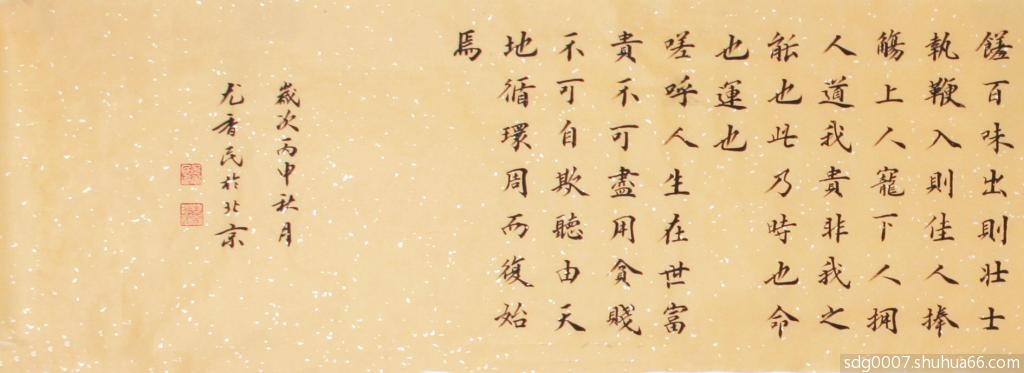 饈百味出則壯士
執鞭入則佳人捧
觴上人寵下人擁
人道我貴非我之
能也此乃時也命
也運也
嗟呼人生在世富
貴不可盡用貧賤
不可自欺聽由天
地循環周而復始
焉
歲次丙申秋月
尤香民於北京
sdg0007.shuhua66.com